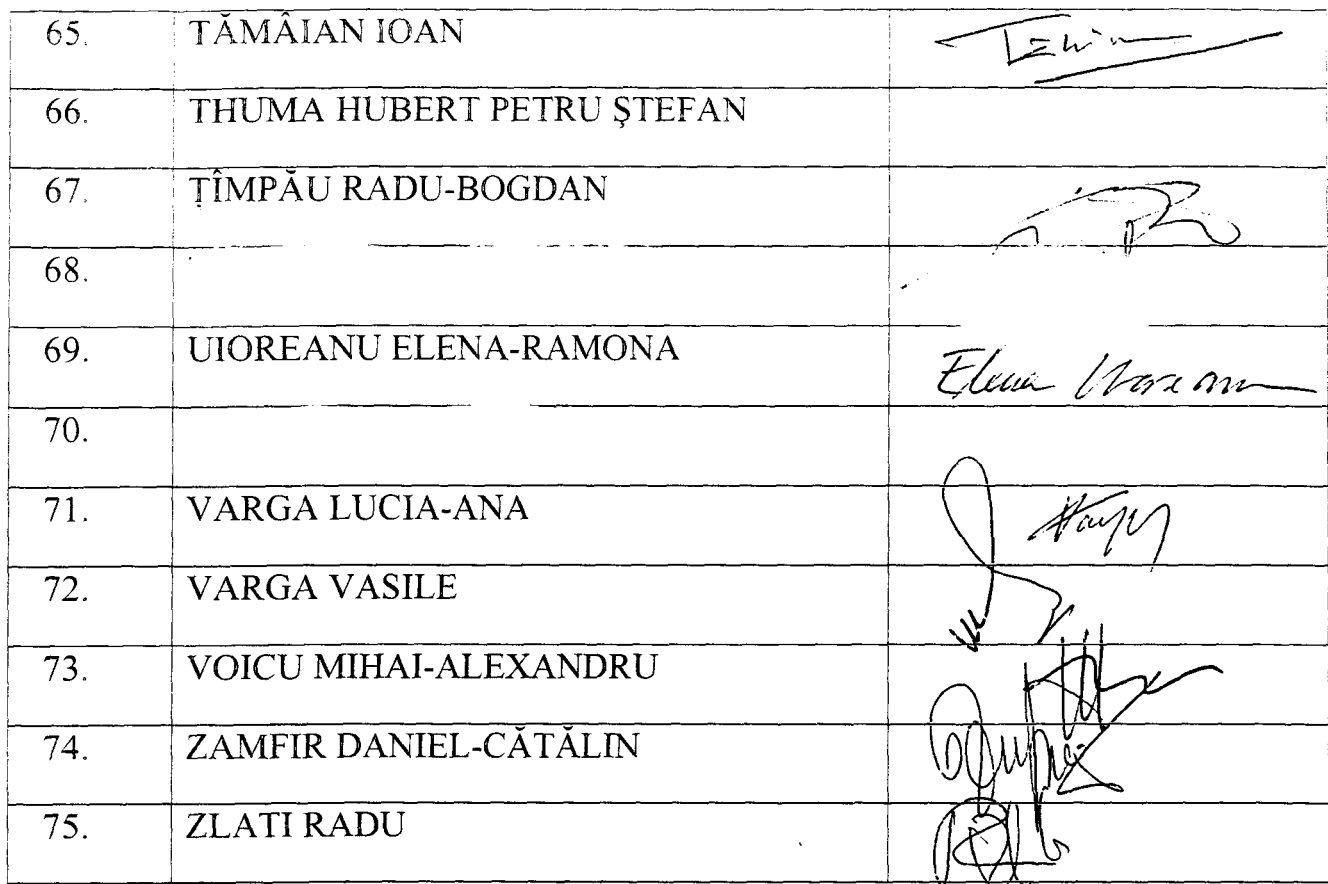 65. TĂMÂIAN IOAN
66. THUMA HUBERT PETRU ŞTEFAN
67. ŢÎMPĂU RADU-BOGDAN
68.
69. UIOREANU ELENA-RAMONA Elena Uioreanu
70.
71. VARGA LUCIA-ANA
72. VARGA VASILE
73. VOICU MIHAI-ALEXANDRU
74. ZAMFIR DANIEL-CĂTĂLIN
75. ZLATI RADU